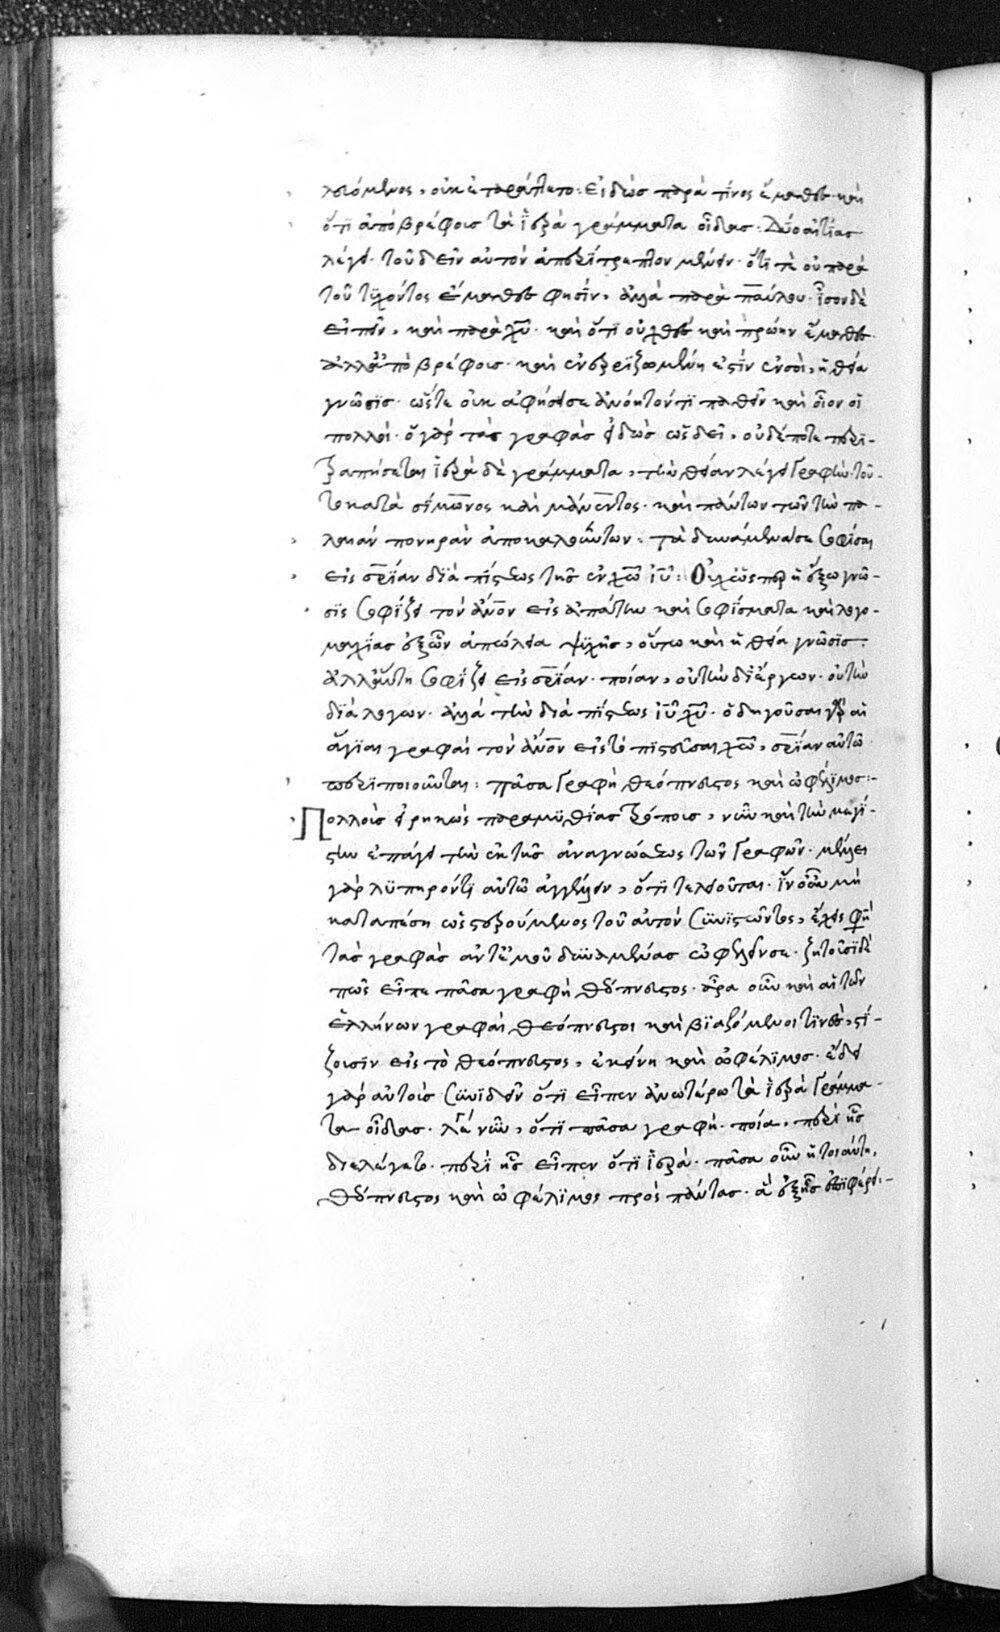 λευόμενος, οὐκ ἐτράπετο: Εἰδὼς παρὰ τίνος ἔμαθες καὶ
ὅτι ἀπὸ βρέφους τὰ ἱερὰ γράμματα οἶδας: Δύο αἰτίας
λέγει τοῦ δεῖν αὐτὸν ἀπερίτρεπτον μένειν· ὅτι τὲ οὐ παρὰ
τοῦ τυχόντος ἔμαθες φησὶν, ἀλλὰ παρὰ παύλου· ἶσον δὲ
εἰπεῖν, καὶ παρὰ χυ· καὶ ὅτι οὐ χθὲς καὶ πρώην ἔμαθες·
ἀλλ' ἀπὸ βρέφους· καὶ ἐνερριζωμένη ἐστὶν ἐν σοὶ, ἡ θεία
γνῶσις· ὥστε οὐκ ἀφήσει σε ἀνόητόν τι παθεῖν καὶ οἷον οἱ
πολλοί· ὁ γὰρ τὰς γραφὰς εἰδὼς ὡς δεῖ, οὐδέποτε περι-
τραπήσεται ἱερὰ δὲ γράμματα, τὴν θείαν λέγει γραφήν· τοῦ-
το κατὰ σίμωνος καὶ μάνεντος· καὶ πάντων τῶν τὴν πα-
λαιὰν πονηρὰν ἀποκαλούντων: τὰ δυνάμενά σε σοφίσαι
εἰς σρίαν διὰ πίστεως τῆς ἐν χω ιυ: Οὐχ ὥσπερ ἡ ἔξω γνῶ-
σις σοφίζει τὸν ανον εἰς ἀπάτην καὶ σοφίσματα καὶ λογο-
μαχίας ἐξ ὧν ἀπώλεια ψυχῆς, οὕτω καὶ ἡ θεία γνῶσις:
ἀλλ' αὕτη σοφίζει εἰς σρίαν· ποίαν, οὐ τὴν δι' ἔργων· οὐ τὴν
διὰ λόγων· ἀλλὰ τὴν διὰ πίστεως ιυ χυ· ὁδηγοῦσαι γὰρ αἱ
ἅγιαι γραφαὶ τὸν ανον εἰς τὸ πιστεῦσαι χω, σρίαν αὐτῶ
περιποιοῦνται: πᾶσα γραφὴ θεόπνευστος καὶ ὠφέλιμος:-
Πολλοῖς εἰρηκὼς παραμυθίας τρόποις, νῦν καὶ τὴν μεγί-
στην ἐπάγει τὴν ἐκ τῆς ἀναγνώσεως τῶν γραφῶν· μέλλει
γὰρ λυπηρόν τι αὐτῶ ἀγγέλλειν, ὅτι τελειοῦται· ἵν' οὖν μὴ
καταπέση ὡς στερούμενος τοῦ αὐτὸν συνιστῶντος, ἔχεις φησὶ
τὰς γραφὰς ἀντ' ἐμοῦ δυναμένας ὠφελεῖν σε· ζητοῦσι δὲ
πῶς εἶπε πᾶσα γραφὴ θεόπνευστος· ἆρα οὖν καὶ αἱ τῶν
ἑλλήνων γραφαὶ θεόπνευστοι καὶ βιαζόμενοι τινὲς, στί-
ζουσιν εἰς τὸ θεόπνευστος, ἐκείνη καὶ ὠφέλιμος· ἔδει
γὰρ αὐτοὺς συνιδεῖν ὅτι εἶπεν ἀνωτέρω τὰ ἱερὰ γράμμα-
τα οἶδας· λέγει νῦν, ὅτι πᾶσα γραφὴ· ποία, περὶ ἧς
διελέγετο· περὶ ἧς εἶπεν ὅτι ἱερά· πᾶσα οὖν ἡ τοιαύτη,
θεόπνευστος καὶ ὠφέλιμος πρὸς πάντας· ἃ ἐξῆς ἐπιφέρει:-